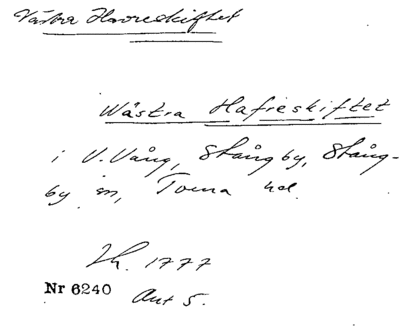 Västra Havreskiftet
Wästra Hafreskiftet
i V. Vång, Stångby, Stång-
by sn, Torna hd.
Lh. 1777
Nr 6240
Akt 5.